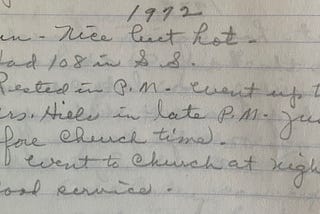 1972
un - Nice but hot -
Had 108 in S. S.
Rested in P.M. - Went up t
rs. Hiels in late P.M. Ju
fore church time.
Went to church at nigh
ood service.